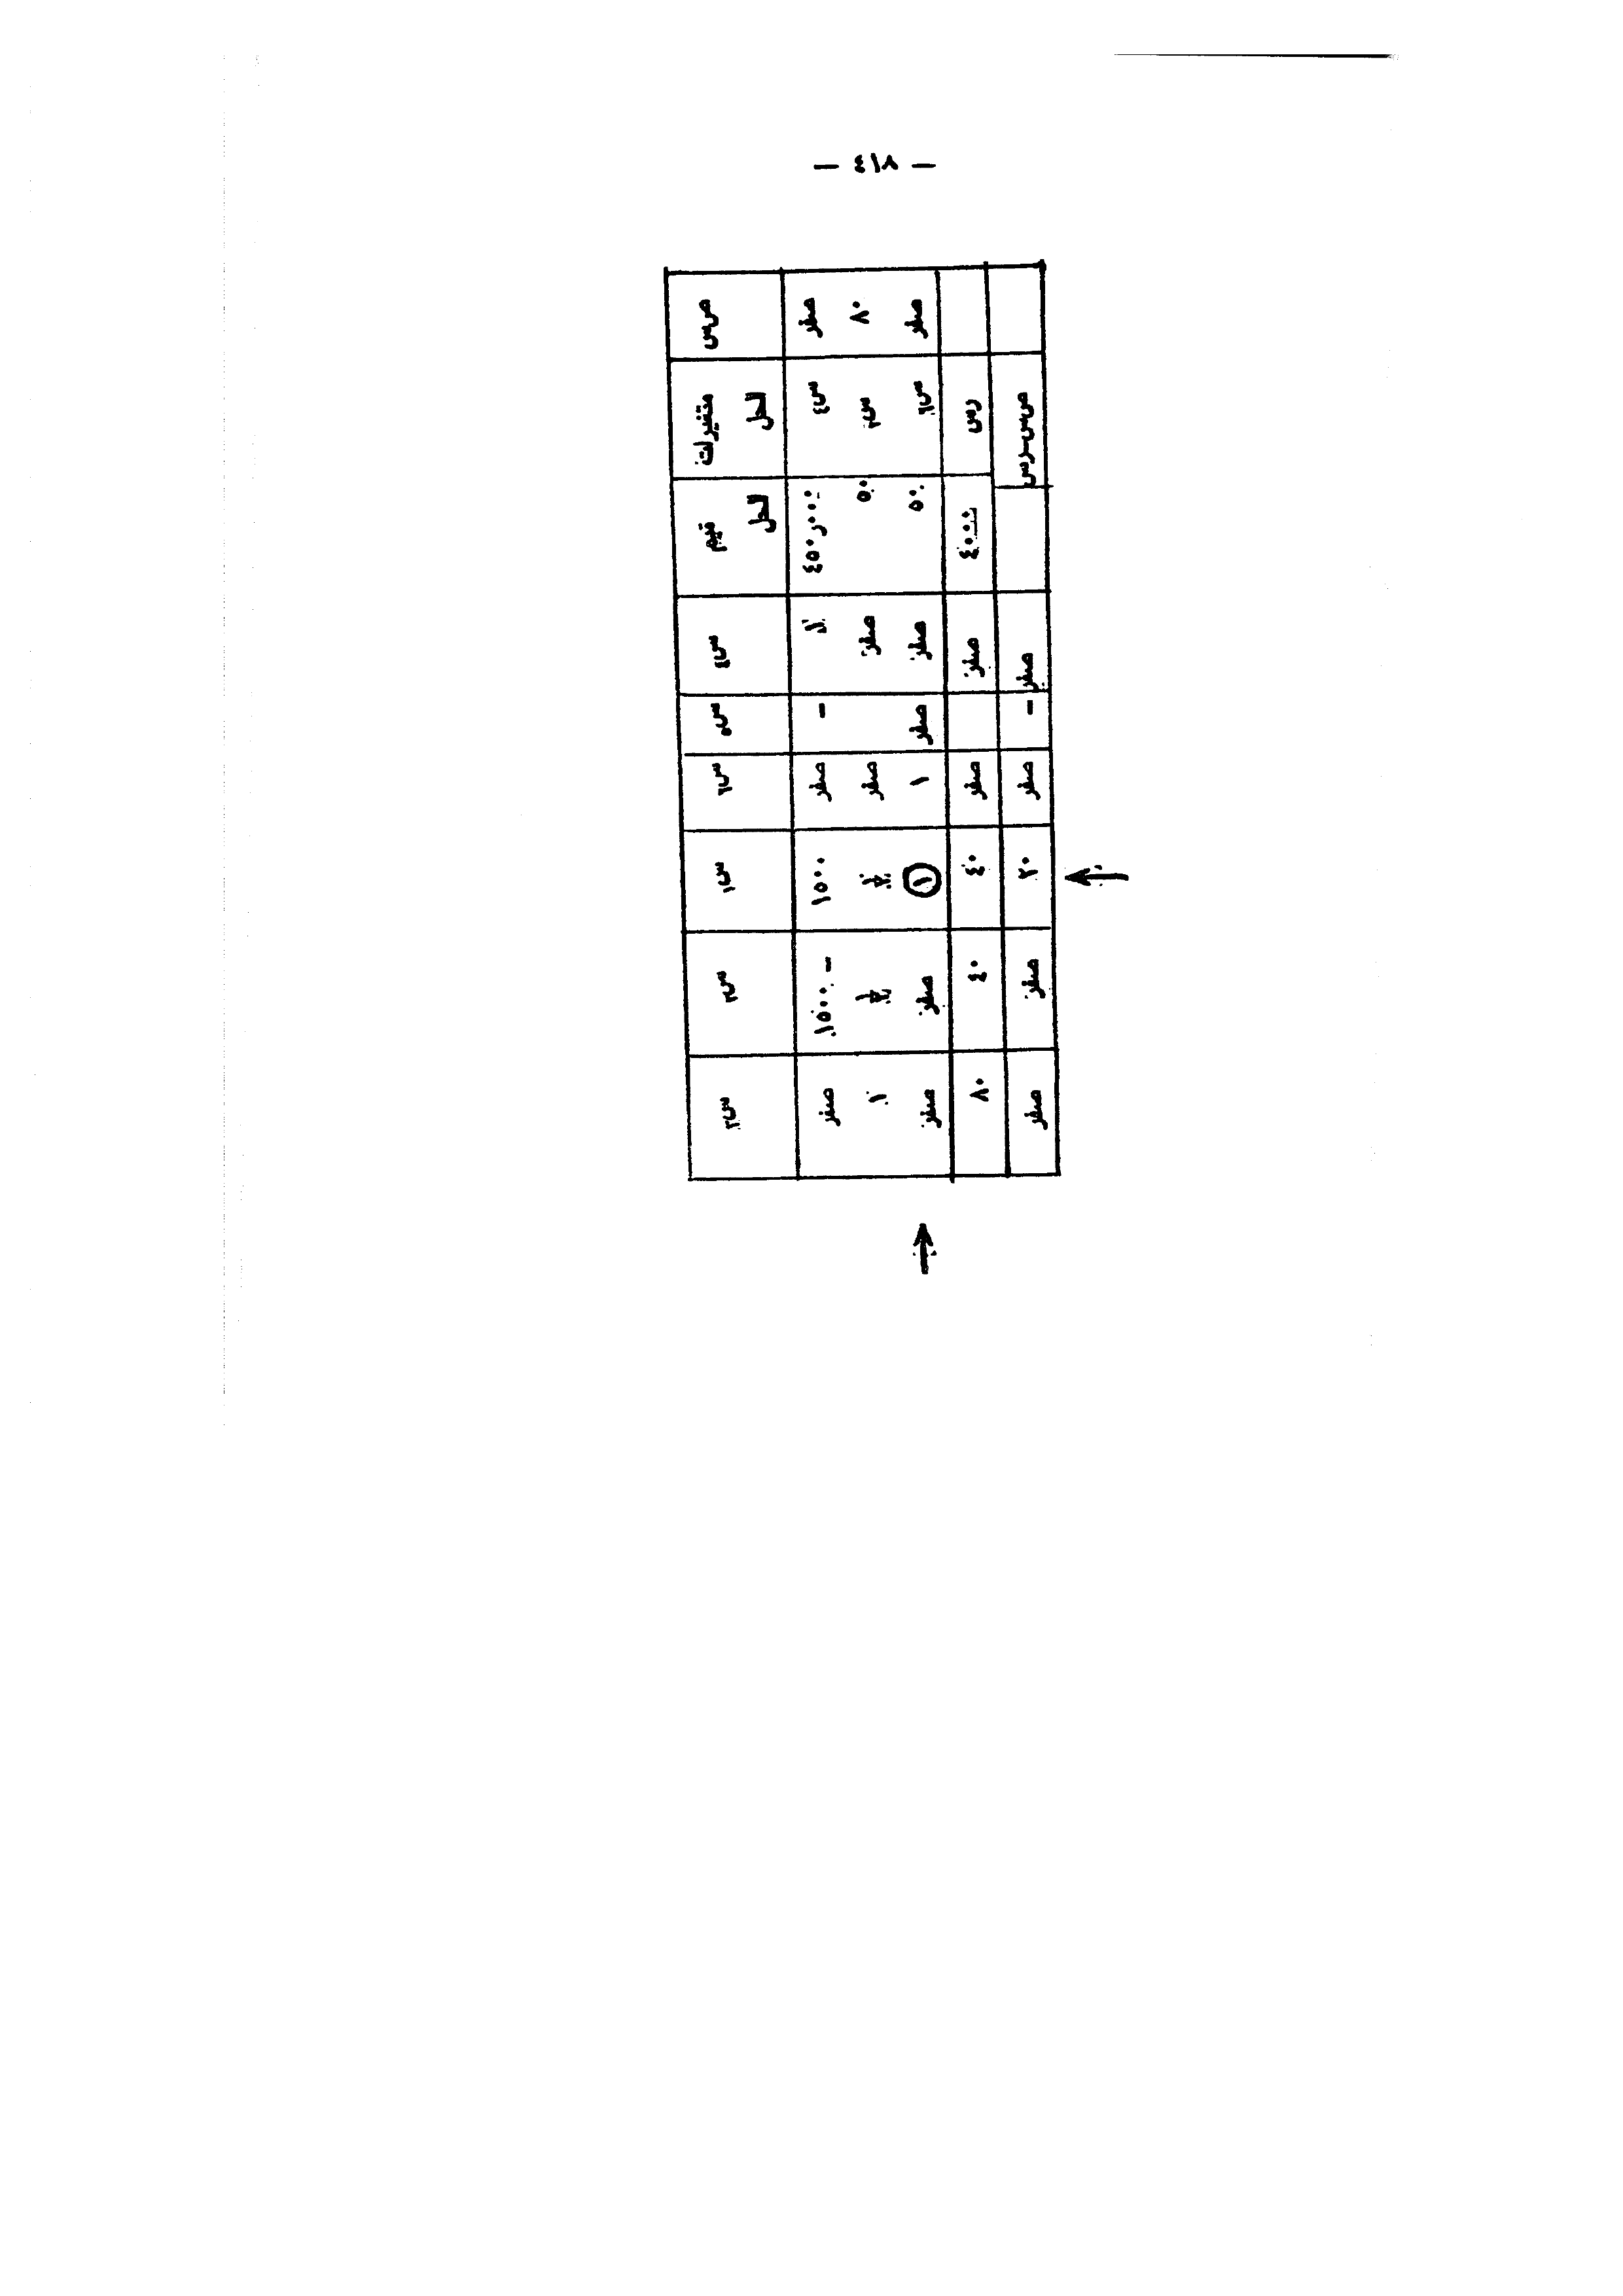 — ٤١٨ —
ص س | متغيرات الحل | قيم الحل | س٤ | س٥ | س٦ | س١ | س٢ | س٣
صفر | س٤ | ٤٥٠ر٠٠٠ | ١ | — | صفر | ١٥٠٠ | ١٥٠٠ — | صفر
٨٠ | س٣ | ٥٠ | صفر | | صفر | | | ١
صفر | س٦ | ٥٠ | صفر | صفر | ١ | ١ | صفر | صفر
رس | ٤٠٠٠ | صفر | | صفر | ٤٠ | ٤٠ | ٨٠
ص س – رس | صفر | — | صفر | ٢٠ | صفر | صفر